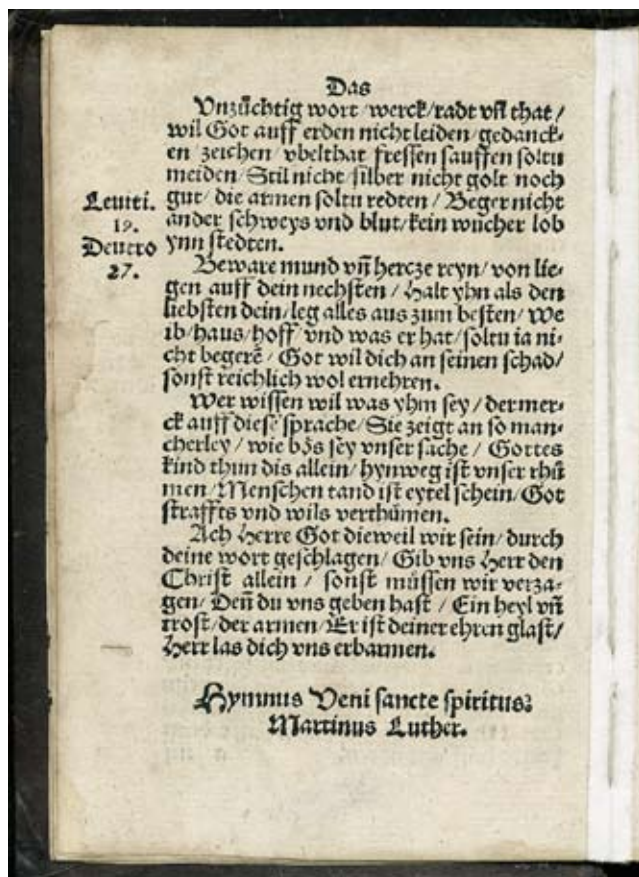 Das
Vnzüchtig wort/werck/radt vñ that/
wil Got auff erden nicht leiden/gedanck-
en zeichen/vbelthat fressen sauffen soltu
meiden/Stil nicht/silber nicht golt noch
gut/die armen soltu redten/Beger nicht
ander schweys vnd blut/kein wucher lob
ynn stedten.
Leuiti.
19.
Deutro
27.
Beware mund vñ hercze reyn/von lie-
gen auff dein nechsten/Halt yhn als den
liebsten dein/leg alles aus zum besten/We
ib/haus/hoff/vnd was er hat/soltu ia ni-
cht begerē/Got wil dich an seinen schad/
sonst reichlich wol ernehren.
Wer wissen wil was yhm sey/der mer-
ck auff diese sprache/Sie zeigt an so man-
cherley/wie bös sey vnser sache/Gottes
kind thun dis allein/hynweg ist vnser rhū
men/Menschen tand ist eytel schein/Got
straffts vnd wils verthümen.
Ach Herre Got dieweil wir sein/durch
deine wort geschlagen/Gib vns Herr den
Christ allein/sonst müssen wir verza-
gen/Deñ du vns geben hast/Ein heyl vñ
trost/der armen/Er ist deiner ehren glast/
Herr las dich vns erbarmen.
Hymnus Veni sancte spiritus?
Martinus Luther.